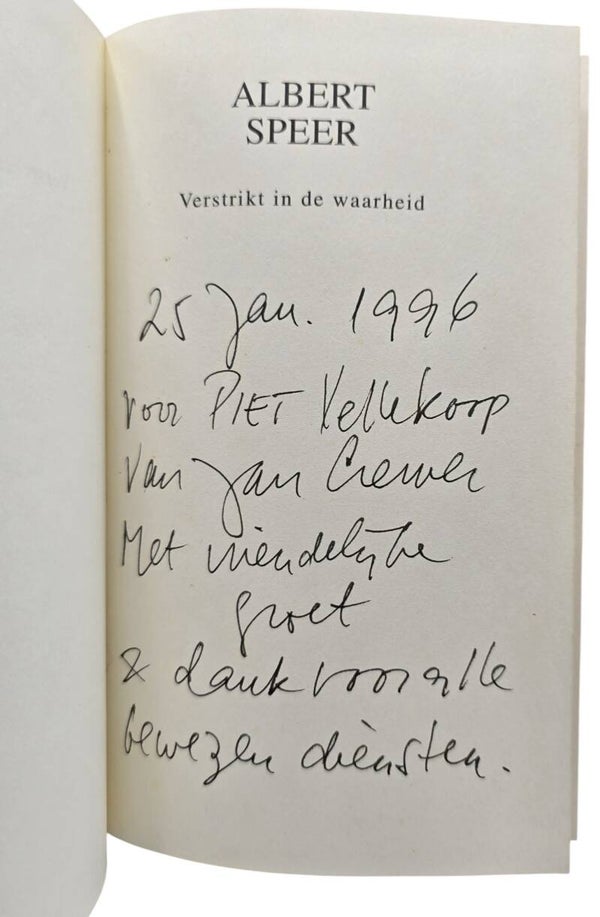 ALBERT
SPEER
Verstrikt in de waarheid
25 Jan. 1996
voor PIET Vellekoop
van Jan Cremer
Met vriendelijke
groet
& dank voor alle
bewezen diensten.